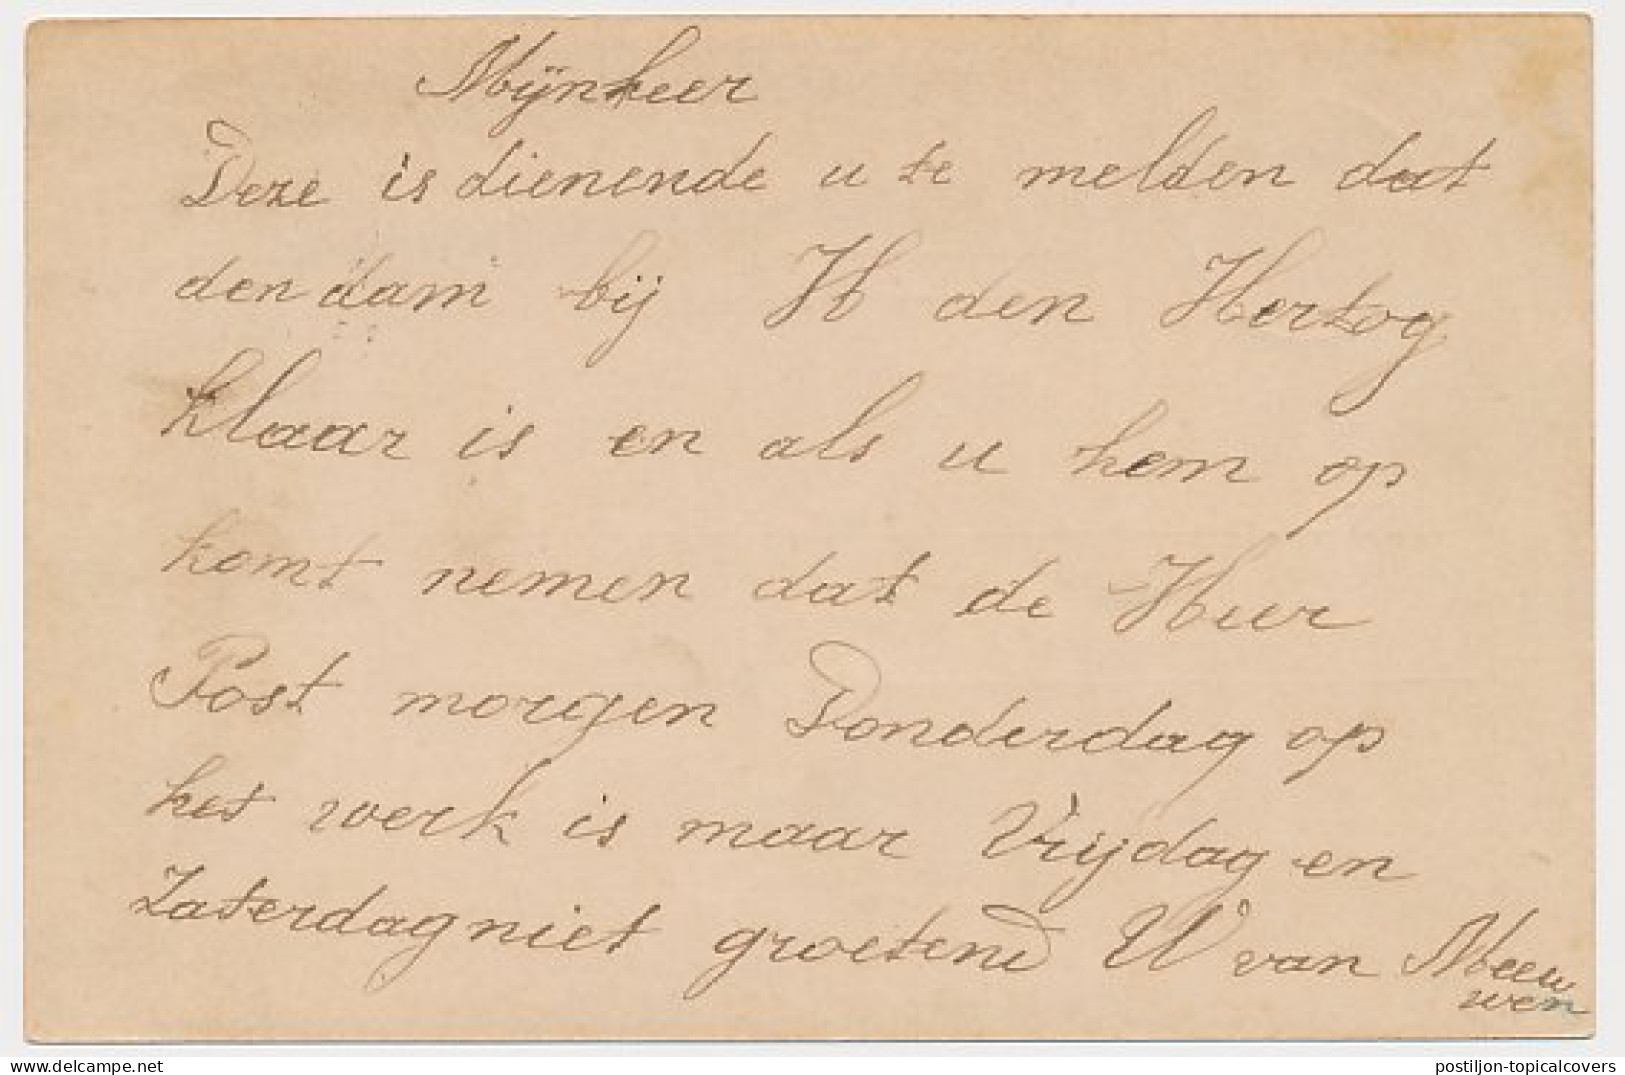 Mijnheer
Deze is dienende u te melden dat
den dam bij H den Hertog
klaar is en als u hem op
komt nemen dat de Heer
Post morgen Donderdag op
het werk is maar Vrijdag en
Zaterdag niet groetend W van Meeu
wen
postiljon-topicalcovers